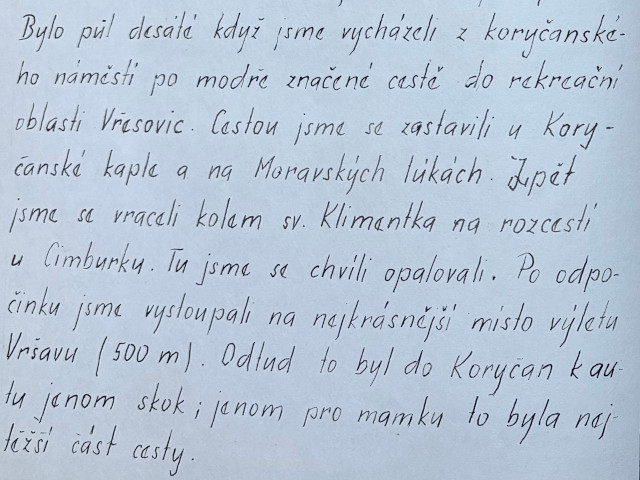 Bylo půl desáté když jsme vycházeli z koryčanské-
ho náměstí po modře značené cestě do rekreační
oblasti Vřesovic. Cestou jsme se zastavili u Kory-
čanské kaple a na Moravských lúkách. Zpět
jsme se vraceli kolem sv. Klimentka na rozcestí
u Cimburku. Tu jsme se chvíli opalovali. Po odpo-
činku jsme vystoupali na nejkrásnější místo výletu
Vršavu (500 m). Odtud to byl do Koryčan k au-
tu jenom skok; jenom pro mamku to byla nej-
těžší část cesty.